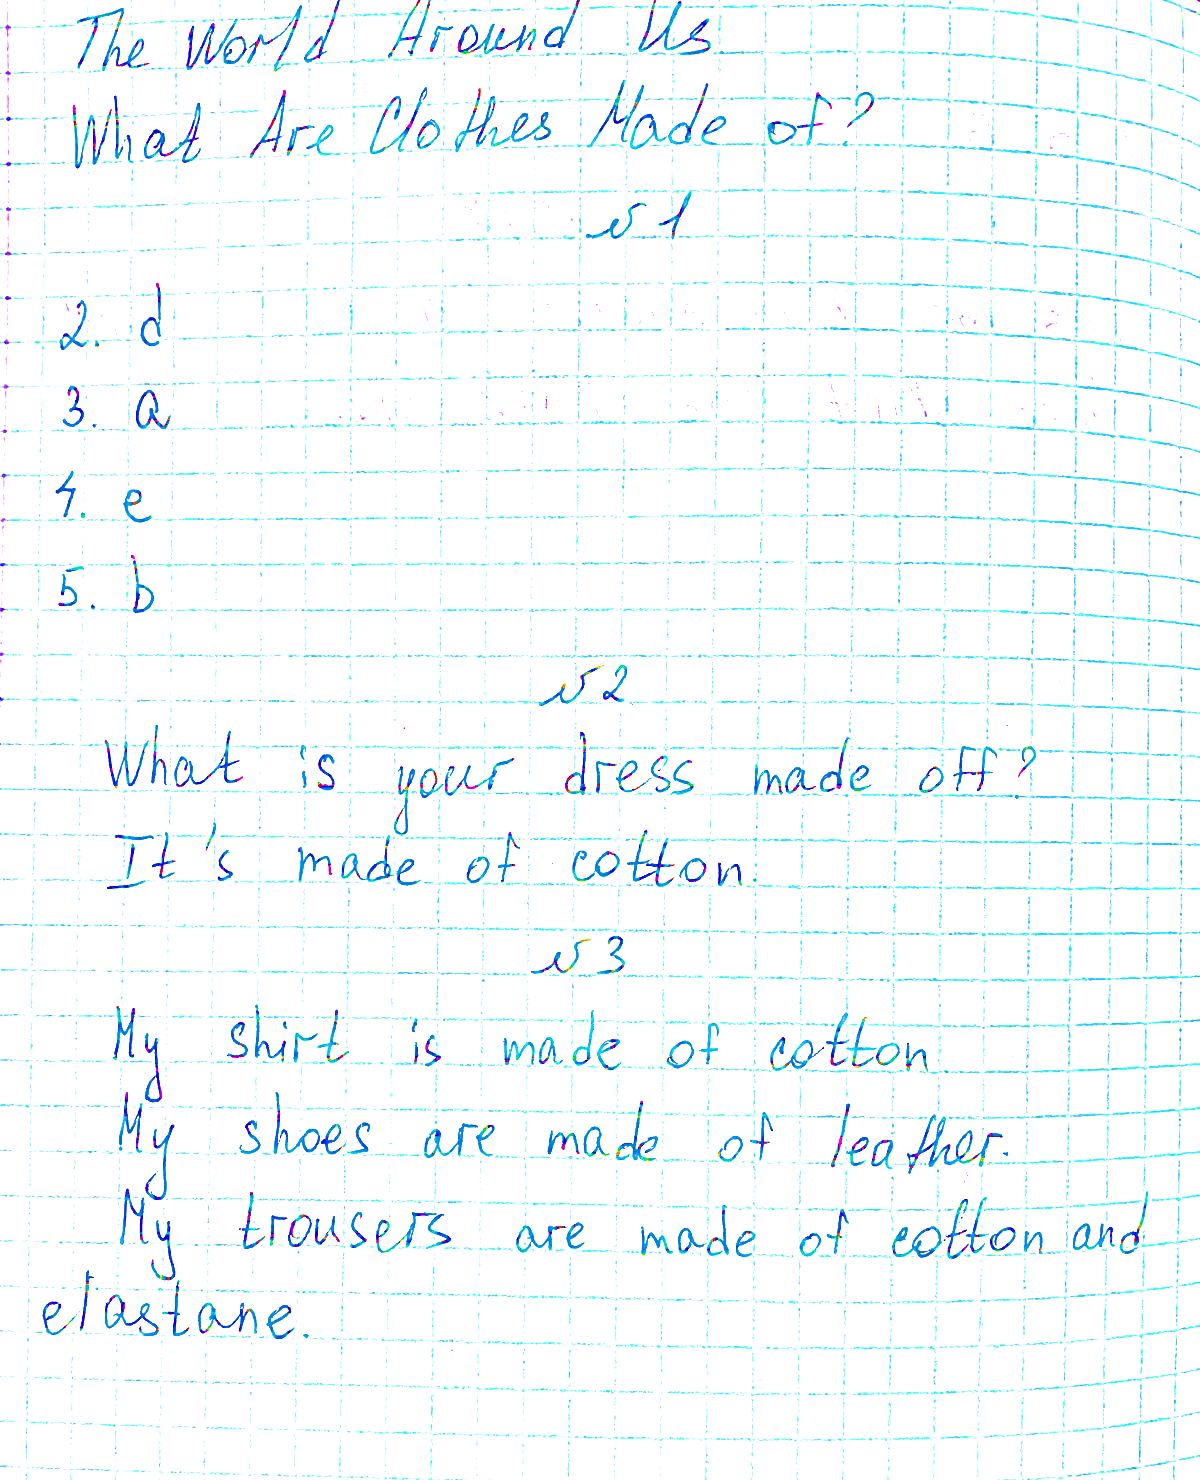 The World Around Us
What Are Clothes Made of?
№1
2. d
3. a
4. e
5. b
№2
What is your dress made off?
It's made of cotton.
№3
My shirt is made of cotton.
My shoes are made of leather.
My trousers are made of cotton and
elastane.